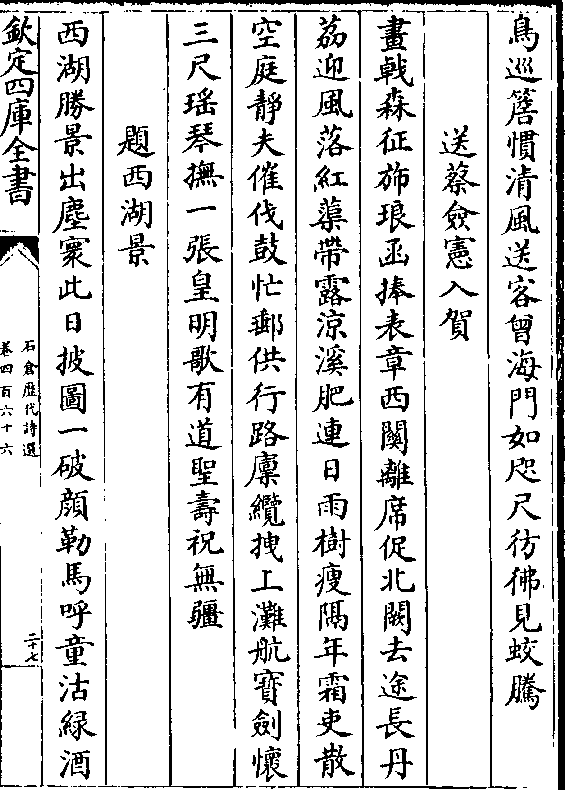 鳥巡簷慣清風送客曾海門如咫尺彷彿見蛟騰
送蔡僉憲入賀
畫戟森征斾琅函捧表章西關離席促北闕去途長丹
荔迎風落紅蕖帶露涼溪肥連日雨樹瘦隔年霜吏散
空庭靜夫催伐鼓忙郵供行路廩纜拽上灘航寳劍懷
三尺瑶琴撫一張皇明歌有道聖壽祝無疆
題西湖景
西湖勝景出塵寰此日披圖一破顔勒馬呼童沽緑酒
欽定四庫全書
石倉歷代詩選
卷四百六十六
二十七